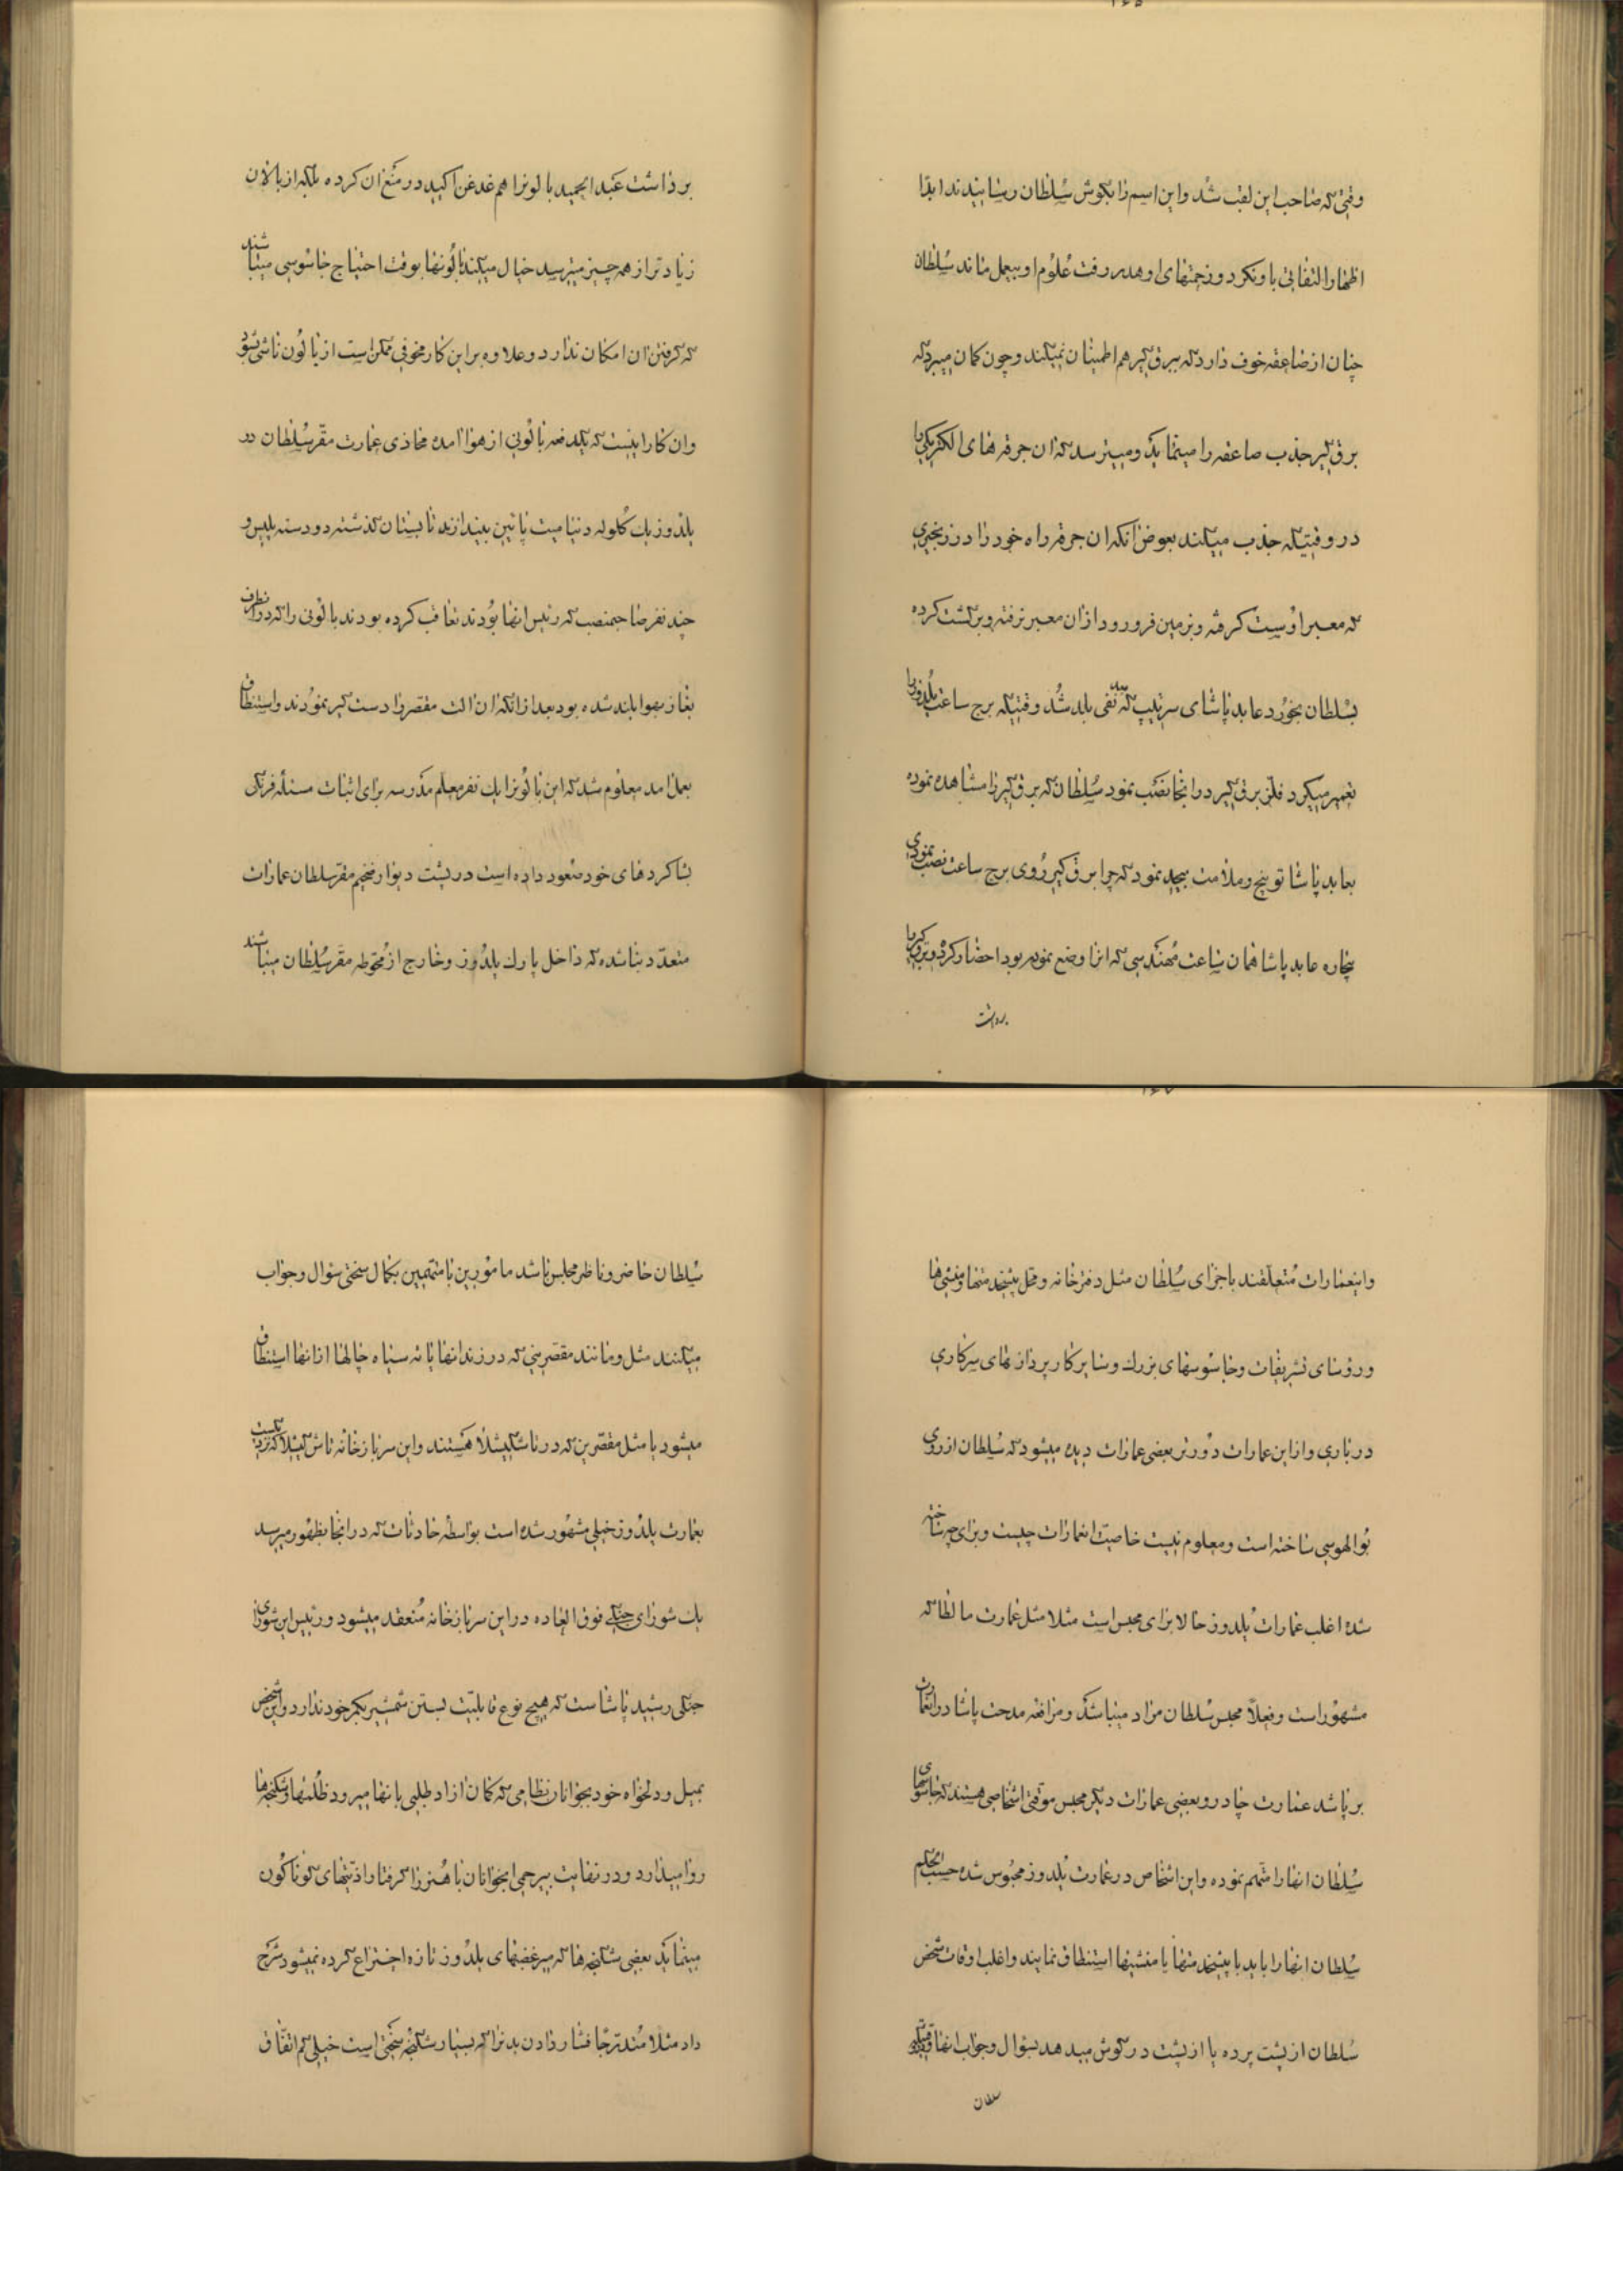 وقتی که صاحب این لقب شد و این اسم را بگوش سلطان رسانیدند ابدا
اظهار التفاتی باو نکرد و زحمتهای او هدر رفت علوم او بیعمل ماند سلطان
چنان از صاعقه خوف دارد که ببرق گیر هم اطمینان نمیکند و چون کمان میبرد که
برق گیر جذب صاعقه را مینماید و میترسد که ان جرقه های الکتریکی را
در وقتیکه جذب میکند بعوض انکه ان جرقه راه خود را در زنجیری
که معبر اوست گرفته و بزمین فرو رود از ان معبر نرفته و برگشت کرده
بسلطان بخورد عابد پاشای سرتیپ که نفی بلد شد وقتیکه برج ساعت یلدوز را
تعمیر میکرد فلز برق گیر در انجا نصب نمود سلطان که برق گیر را مشاهده نموده
بعابد پاشا توبیخ و ملامت بیحد نمود که چرا برق گیر روی برج ساعت نصب نمودی
بیچاره عابد پاشا همان ساعت مهندسی که انرا وضع نموده بود احضار کرد و برق گیر را
برداشت
برداشت عبد الحمید بالونرا هم غدغن اکید در منع ان کرده بلکه از بالان
زیادتر از همه چیز میترسد خیال میکند بالونها بوقت احتیاج جاسوسی میباشند
که گرفتن ان امکان ندارد و علاوه بر این کار مخوفی ممکن است از بالون ناشی شود
وان کار اینست که یکدفعه بالونی از هوا امده محاذی عمارت مقر سلطان در
یلدوز یک گلوله دینامیت پائین بیندازند تابستان گذشته دو دسته پلیس و
چند نفر صاحبمنصب که رئیس انها بودند تعاقب کرده بودند بالونی را که در انطرف
بغاز بهوا بلند شده بود بعد از انکه ان الت مقصر را دست گیر نمودند و استنطاق
بعمل امد معلوم شد که این بالونرا یک نفر معلم مدرسه برای اثبات مسئله فرنگی
بشاگردهای خود صعود داده است در پشت دیوار ضخیم مقر سلطان عمارات
متعدد بنا شده که داخل پارک یلدوز و خارج از محوطه مقر سلطان میباشند
و اینعمارات متعلقند باجزای سلطان مثل دفتر خانه و محل پیشخدمتها و منشی ها
و رؤسای تشریفات و جاسوسهای بزرک و سایر کار پردازهای سرکاری
درباری و از این عمارات دورتر بعضی عمارات دیده میشود که سلطان از روی
بوالهوسی ساخته است و معلوم نیست خاصیت انعمارات چیست و برای چه ساخته
شده اغلب عمارات یلدوز حالا برای محبس است مثلا مثل عمارت مالطا که
مشهور است و فعلا محبس سلطان مراد میباشد و مرافعه مدحت پاشا در انعمارت
برپا شد عمارت چادر و بعضی عمارات دیگر محبس موقتی اشخاصی هستند که جاسوسهای
سلطان انها را متهم نموده و این اشخاص در عمارت یلدوز محبوس شده حسب الحکم
سلطان انها را باید با پیشخدمتها یا منشیها استنطاق نمایند و اغلب اوقات شخص
سلطان از پشت پرده یا از پشت در گوش میدهد بسوال و جواب انها وقتیکه
سلطان
سلطان حاضر و ناظر مجلس باشد مامورین با متهمین بکمال سختی سوال و جواب
میکنند مثل و مانند مقصرینی که در زندانها یا ته سیاه چالها از انها استنطاق
میشود یا مثل مقصرین که در تاشکیشلا هستند و این سرباز خانه تاش کیشلا که نزدیکست
بعمارت یلدوز خیلی مشهور شده است بواسطه حادثات که در انجا بظهور میرسد
یک شورای جنگی فوق العاده در این سرباز خانه منعقد میشود و رئیس این شورای
جنگی رشید پاشا ست که هیچ نوع قابلیت بستن شمشیر بکمر خود ندارد و این شخص
بمیل و دلخواه خود بجوانان نظامی که کمان ازاد طلبی بانها میرود ظلمها و شکنجه ها
روا میدارد و در نهایت بیرحمی اینجوانان با هنر را گرفتار اذیتهای گوناگون
مینماید بعضی شکنجه ها که میر غضبهای یلدوز تازه اختراع کرده نمیشود شرح
داد مثلا فشار دادن بد ترا که بسیار شکنجه سختی است خیلی کم اتفاق